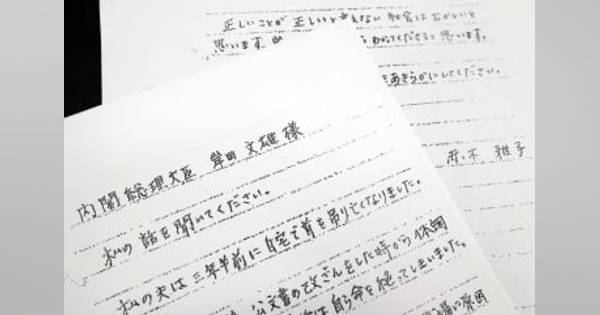 正しいことが正しいと言えない社会はおかしいと
思います。 わかってくださると思います。
をあきらかにしてください。
赤木 雅子
内閣総理大臣 岸田 文雄 様
私の話を聞いてください。
私の夫は三年半前に自宅で首を吊り亡くなりました。
公文書の改ざんをした時から体調
は自ら命を絶ってしまいました。
原因